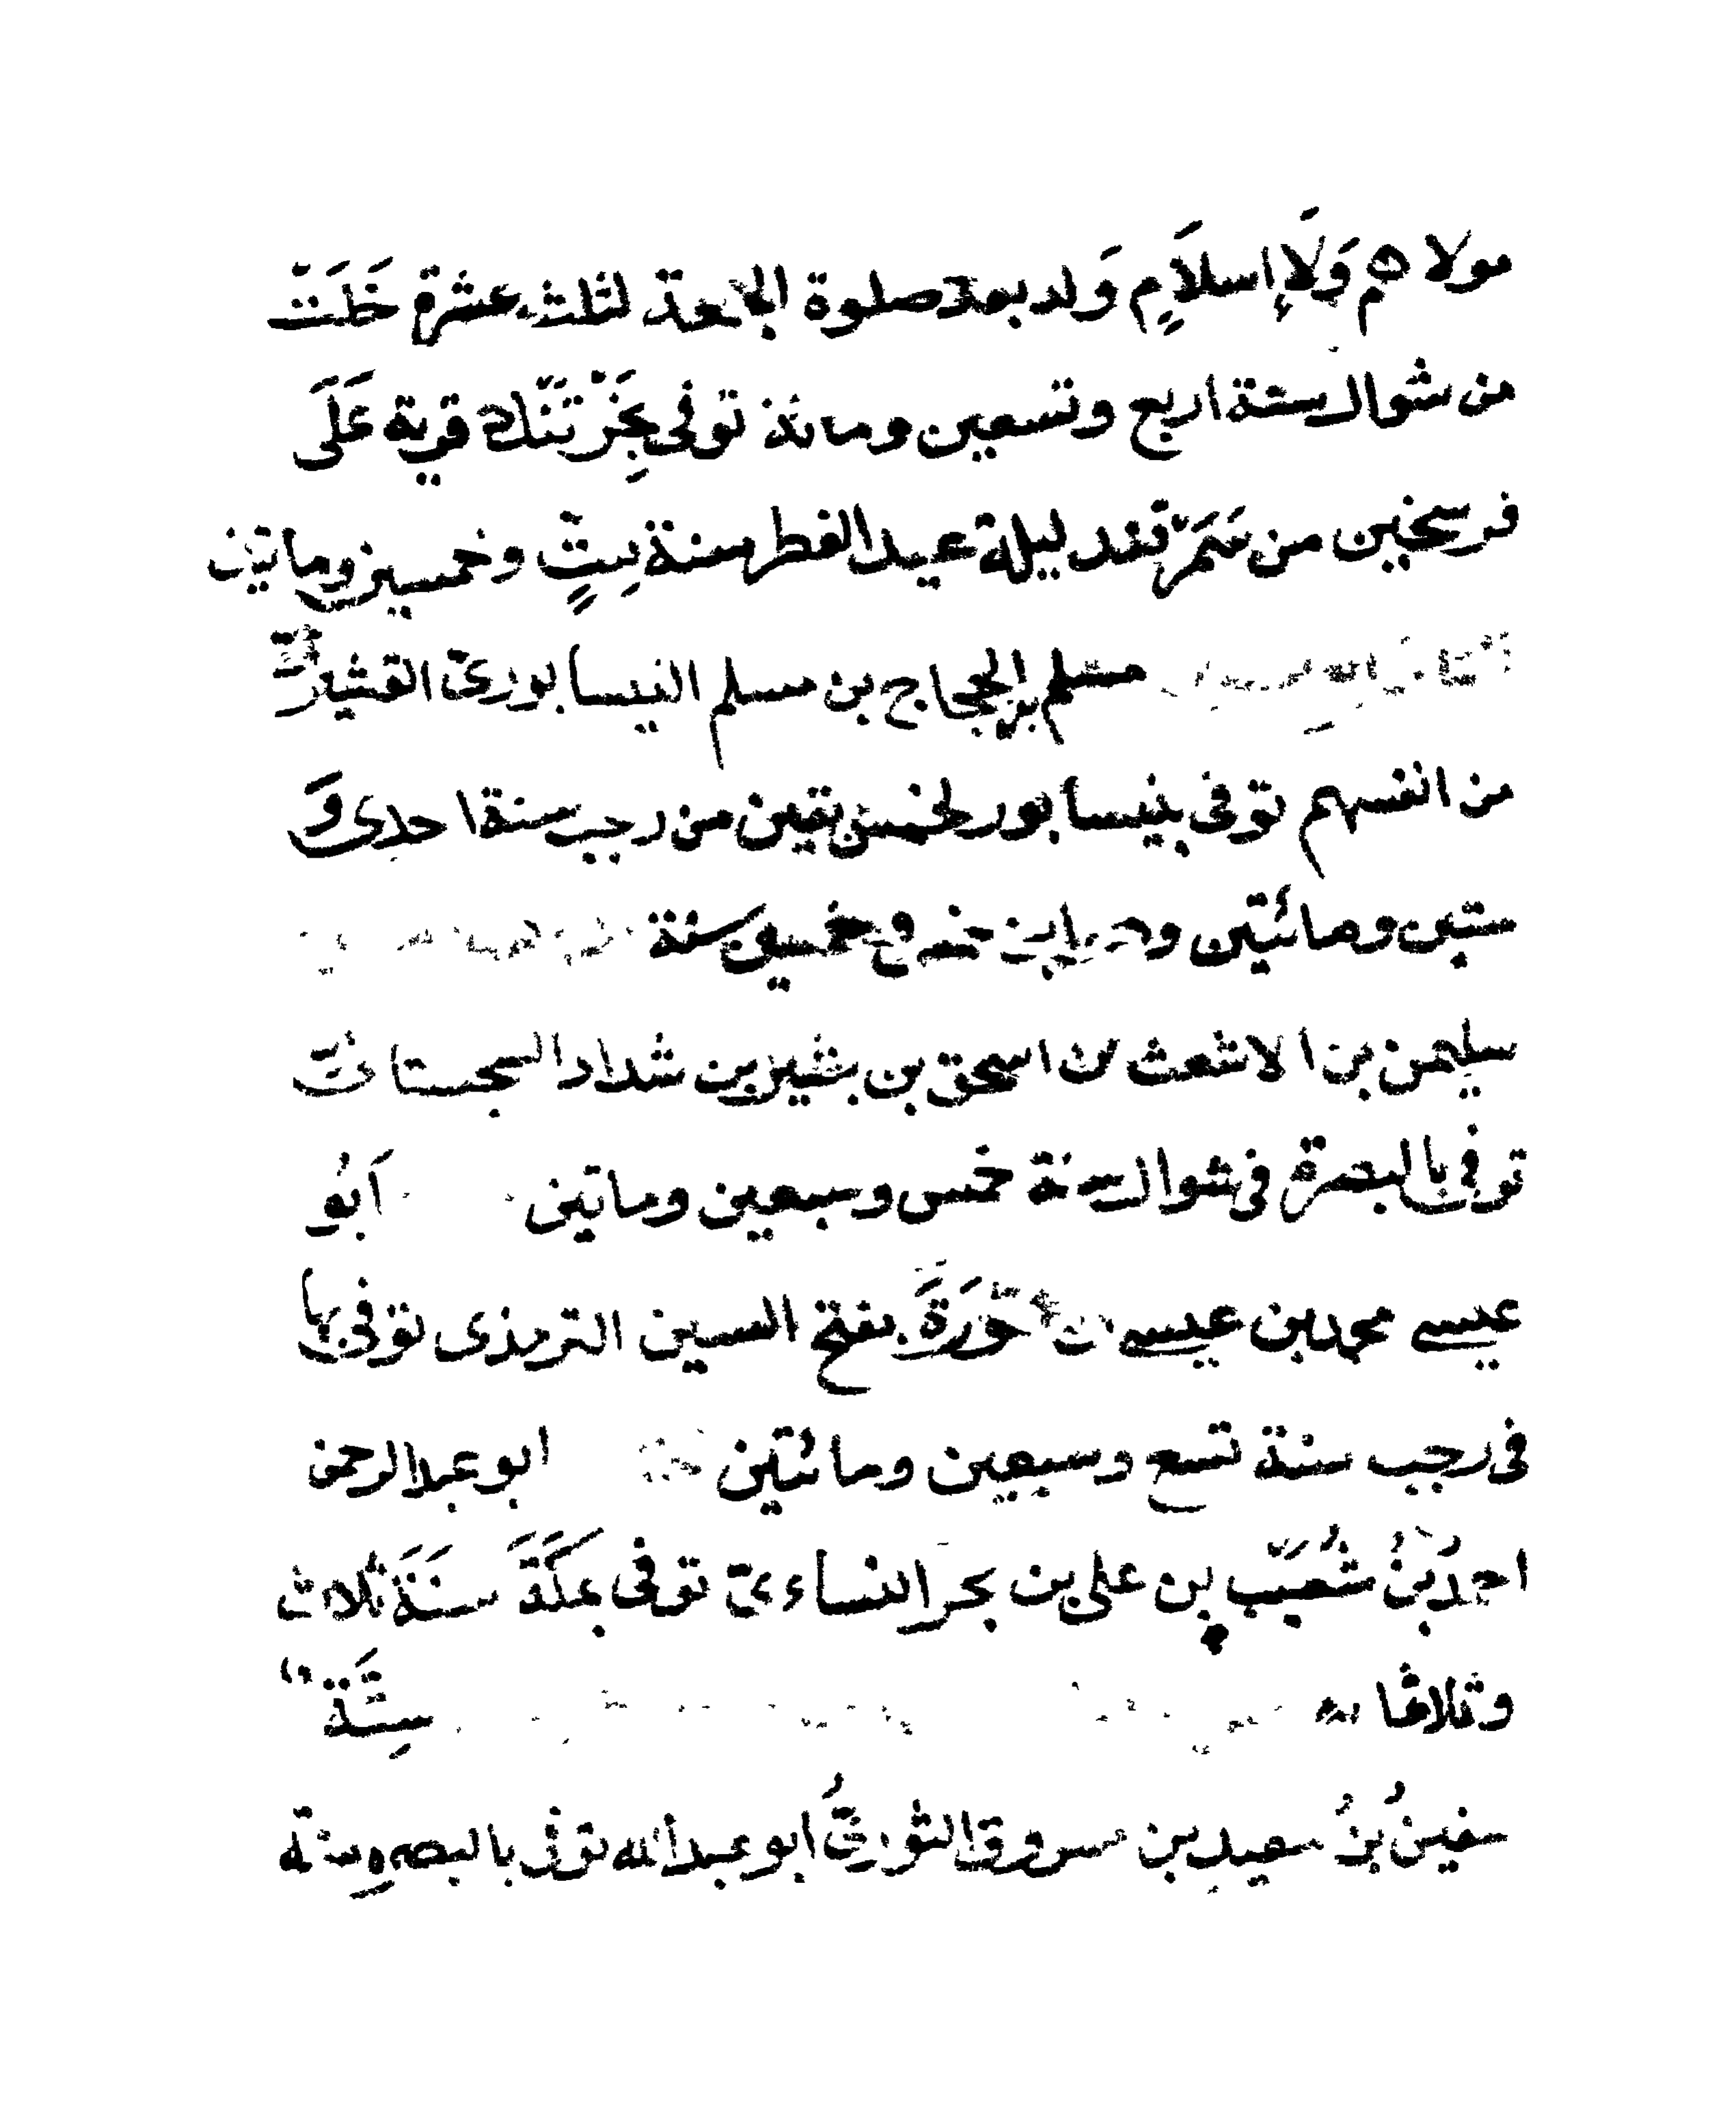 مولاهم وَلَاءِ اسلاَمٍ وَلد بعد صلوة الجمعة لثلث عشرة خَلَتْ
من شوال سنة اربع وتسعين ومائة توفى بِخَرْتَنْكَ قرية عَلَى
فرسخين من سَمَرْقند ليلة عيد الفطر سنة سِتٍّ وخمسين وماتين
مسلم بن الحجاج بن مسلم النيسابورىّ القشيرىّ
من انفسهم توفى بنيسابور لخمس بقين من رجب سنة احدى وَ
ستين ومائتين وهو ابن خمس وخمسين سنة
سليمن بن الاشعث بن اسحق بن بشير بن شداد السجستانىّ
توفى بالبصرة فى شوال سنة خمس وسبعين وماتين اَبُو
عيسى محمد بن عيسى بن سَوْرَةَ بفتح السين الترمذى توفى بها
فى رجب سنة تسع وسبعين ومائتين ابو عبد الرحمن
احمدُ بْنُ شُعَيْب بن على بن بحر النساءىّ توفى بمكَةَ سَنَةَ ثلاث
وثلاثمائة سِتَّةَ
سفينُ بنُ سعيد بن مسروق الثورىُّ ابو عبد الله توفى بالبصرةِ سنة